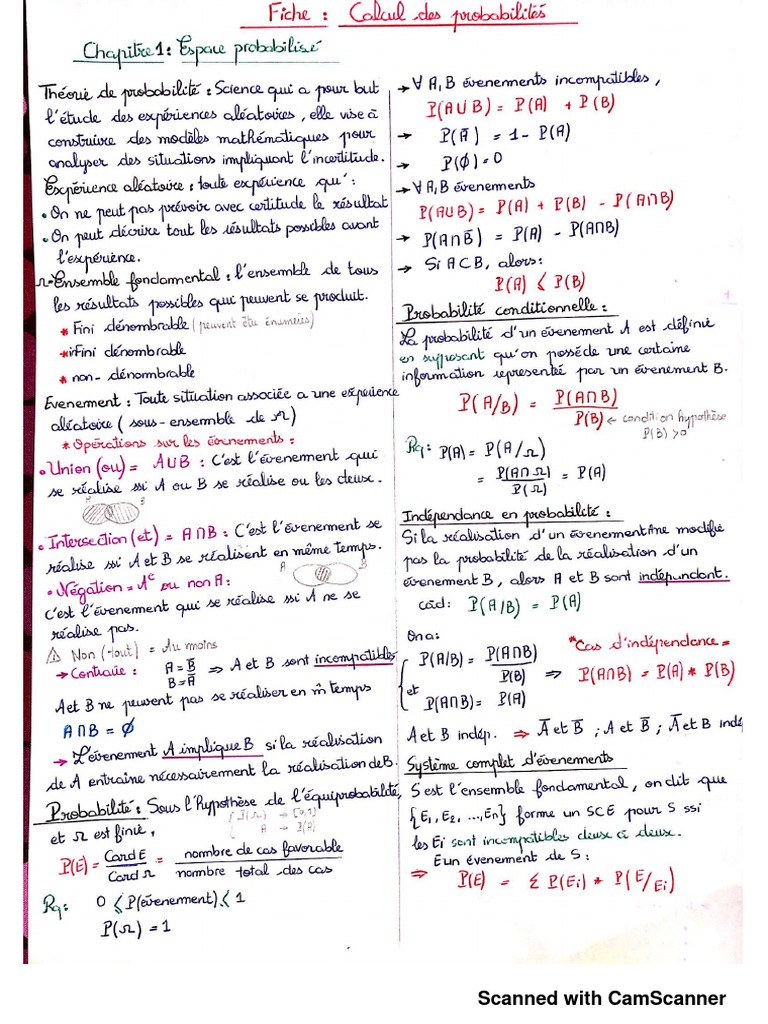 Fiche : Calcul des probabilités
Chapitre 1 : Espace probabilisé
Théorie de probabilité : Science qui a pour but
l'étude des expériences aléatoires, elle vise à
construire des modèles mathématiques pour
analyser des situations impliquant l'incertitude.
Expérience aléatoire : toute expérience qu' :
• On ne peut pas prévoir avec certitude le résultat
• On peut décrire tout les résultats possibles avant
l'expérience.
Ω - Ensemble fondamental : l'ensemble de tous
les résultats possibles qui peuvent se produit.
* Fini dénombrable (peuvent être énumérés)
* infini dénombrable
* non-dénombrable
Evenement : Toute situation associée a une expérience
aléatoire (sous-ensemble de Ω)
* Opérations sur les évenements :
• Union (ou) = A∪B : C'est l'évenement qui
se réalise ssi A ou B se réalise ou les deux.
B
• Intersection (et) = A∩B : C'est l'évenement se
réalise ssi A et B se réalisent en même temps.
A B
• Négation = Aᶜ ou non A :
c'est l'évenement qui se réalise ssi A ne se
réalise pas.
⚠ Non (tout) = Au moins
→ Contraire : A = B̅
B = A̅ ⇒ A et B sont incompatibles
A et B ne peuvent pas se réaliser en m̂ temps
A∩B = ∅
→ L'évenement A implique B si la réalisation
de A entraine nécessairement la réalisation de B.
Probabilité : Sous l'hypothèse de l'équiprobabilité,
et Ω est finie,
P(E) = Card E / Card Ω = nombre de cas favorable / nombre total des cas
Rq : 0 ≤ P(évenement) ≤ 1
P(Ω) = 1
→ ∀ A, B évenements incompatibles,
P(A∪B) = P(A) + P(B)
→ P(A̅) = 1 - P(A)
→ P(∅) = 0
→ ∀ A, B évenements
P(A∪B) = P(A) + P(B) - P(A∩B)
→ P(A∩B̅) = P(A) - P(A∩B)
→ Si A⊂B, alors :
P(A) ≤ P(B)
Probabilité conditionnelle :
La probabilité d'un évenement A est définie
en supposant qu'on posséde une certaine
information representée par un évenement B.
P(A/B) = P(A∩B) / P(B) ← condition hypothèse
P(B) > 0
Rq : P(A) = P(A/Ω)
= P(A∩Ω) / P(Ω) = P(A)
Indépendance en probabilité :
Si la réalisation d'un évenement A ne modifie
pas la probabilité de la réalisation d'un
évenement B, alors A et B sont indépendant.
càd : P(A/B) = P(A)
On a : * Cas d'indépendance =
{ P(A/B) = P(A∩B) / P(B) ⇒ P(A∩B) = P(A) * P(B)
et
P(A∩B) = P(A)
A et B indép. ⇒ A̅ et B̅ ; A et B̅ ; A̅ et B indé
Système complet d'évenements
S est l'ensemble fondamental, on dit que
{E₁, E₂, ..., Eₙ} forme un SCE pour S ssi
les Ei sont incompatibles deux à deux.
E un évenement de S :
⇒ P(E) = Σ P(Ei) * P(E/Ei)
Scanned with CamScanner